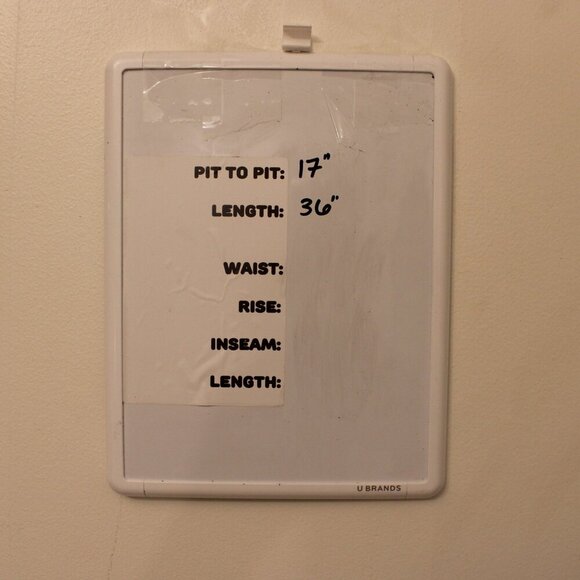 PIT TO PIT: 17"
LENGTH: 36"
WAIST:
RISE:
INSEAM:
LENGTH:
U BRANDS